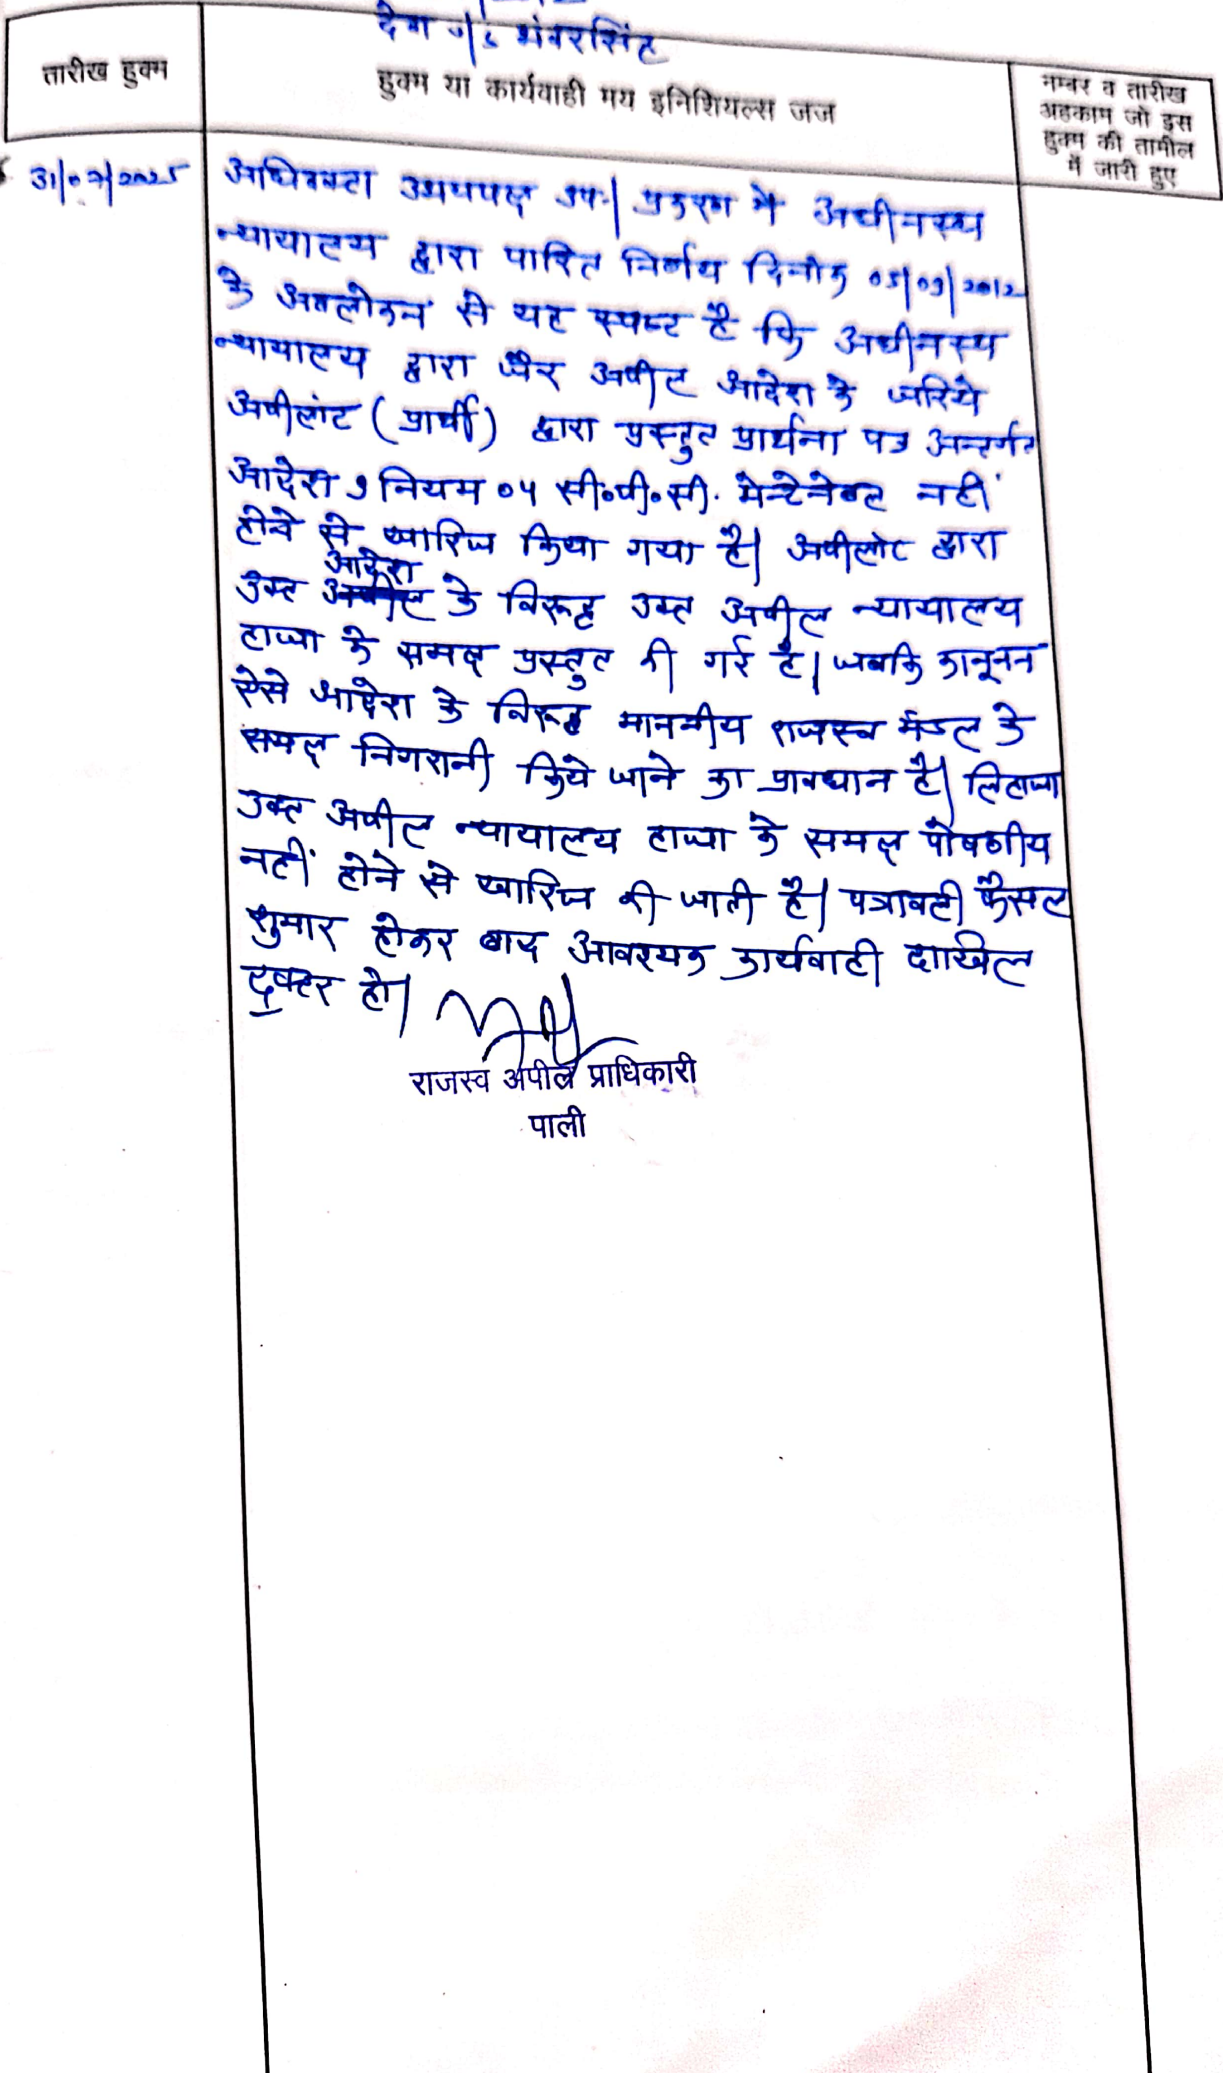 देवा v/s भंवरसिंह
तारीख हुक्म
हुक्म या कार्यवाही मय इनिशियल्स जज
नम्बर व तारीख
अहकाम जो इस
हुक्म की तामील
में जारी हुए
31/07/2025
अधिवक्ता उभयपक्ष उप.। प्रकरण में अधीनस्थ
न्यायालय द्वारा पारित निर्णय दिनांक 05/09/2012
के अवलोकन से यह स्पष्ट है कि अधीनस्थ
न्यायालय द्वारा जैर अपील आदेश के जरिये
अपीलांट (प्रार्थी) द्वारा प्रस्तुत प्रार्थना पत्र अन्तर्गत
आदेश 9 नियम 04 सी०पी०सी. मेन्टेनेबल नहीं
होने से खारिज किया गया है। अपीलांट द्वारा
आदेश
उक्त के विरूद्ध उक्त अपील न्यायालय
हाजा के समक्ष प्रस्तुत की गई है। जबकि कानूनन
ऐसे आदेश के विरूद्ध माननीय राजस्व मंडल के
समक्ष निगरानी किये जाने का प्रावधान है। लिहाजा
उक्त अपील न्यायालय हाजा के समक्ष पोषणीय
नहीं होने से खारिज की जाती है। पत्रावली फैसल
शुमार होकर बाद आवश्यक कार्यवाही दाखिल
दफ्तर हो।
राजस्व अपील प्राधिकारी
पाली